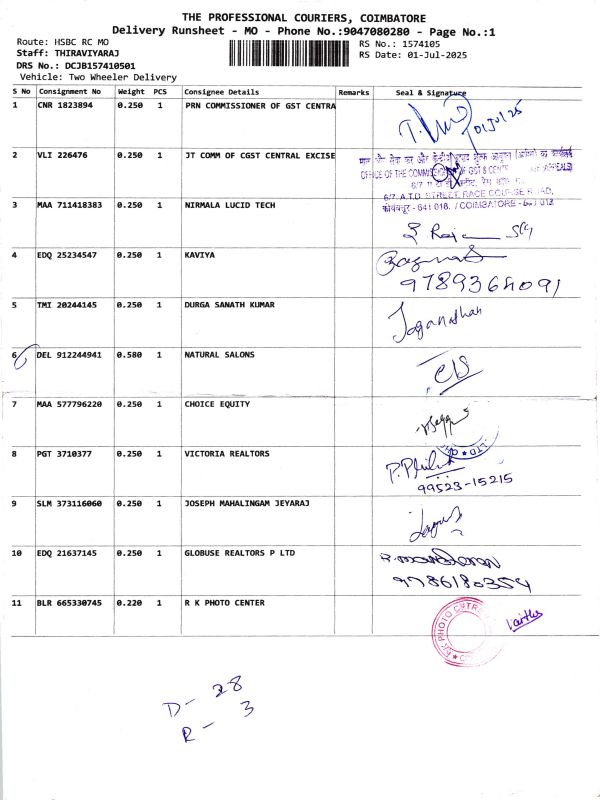 THE PROFESSIONAL COURIERS, COIMBATORE
Delivery Runsheet - MO - Phone No.:9047080280 - Page No.:1
Route: HSBC RC MO
RS No.: 1574105
Staff: THIRAVIYARAJ
RS Date: 01-Jul-2025
DRS No.: DCJB157410501
Vehicle: Two Wheeler Delivery
S No Consignment No Weight PCS Consignee Details Remarks Seal & Signature
1 CNR 1823894 0.250 1 PRN COMMISSIONER OF GST CENTRA
01 Jul 25
2 VLI 226476 0.250 1 JT COMM OF CGST CENTRAL EXCISE
OFFICE OF THE OF GST & (APPEALS)
6/7 A.T.D. STREET, RACE COURSE ROAD,
कोयंबत्तूर - 641 018. / COIMBATORE - 641 018
3 MAA 711418383 0.250 1 NIRMALA LUCID TECH
4 EDQ 25234547 0.250 1 KAVIYA
9789364091
5 TMI 20244145 0.250 1 DURGA SANATH KUMAR
Jaganathan
6 DEL 912244941 0.580 1 NATURAL SALONS
7 MAA 577796220 0.250 1 CHOICE EQUITY
8 PGT 3710377 0.250 1 VICTORIA REALTORS
99523-15215
9 SLM 373116060 0.250 1 JOSEPH MAHALINGAM JEYARAJ
10 EDQ 21637145 0.250 1 GLOBUSE REALTORS P LTD
9786180354
11 BLR 665330745 0.220 1 R K PHOTO CENTER
D - 28
R - 3